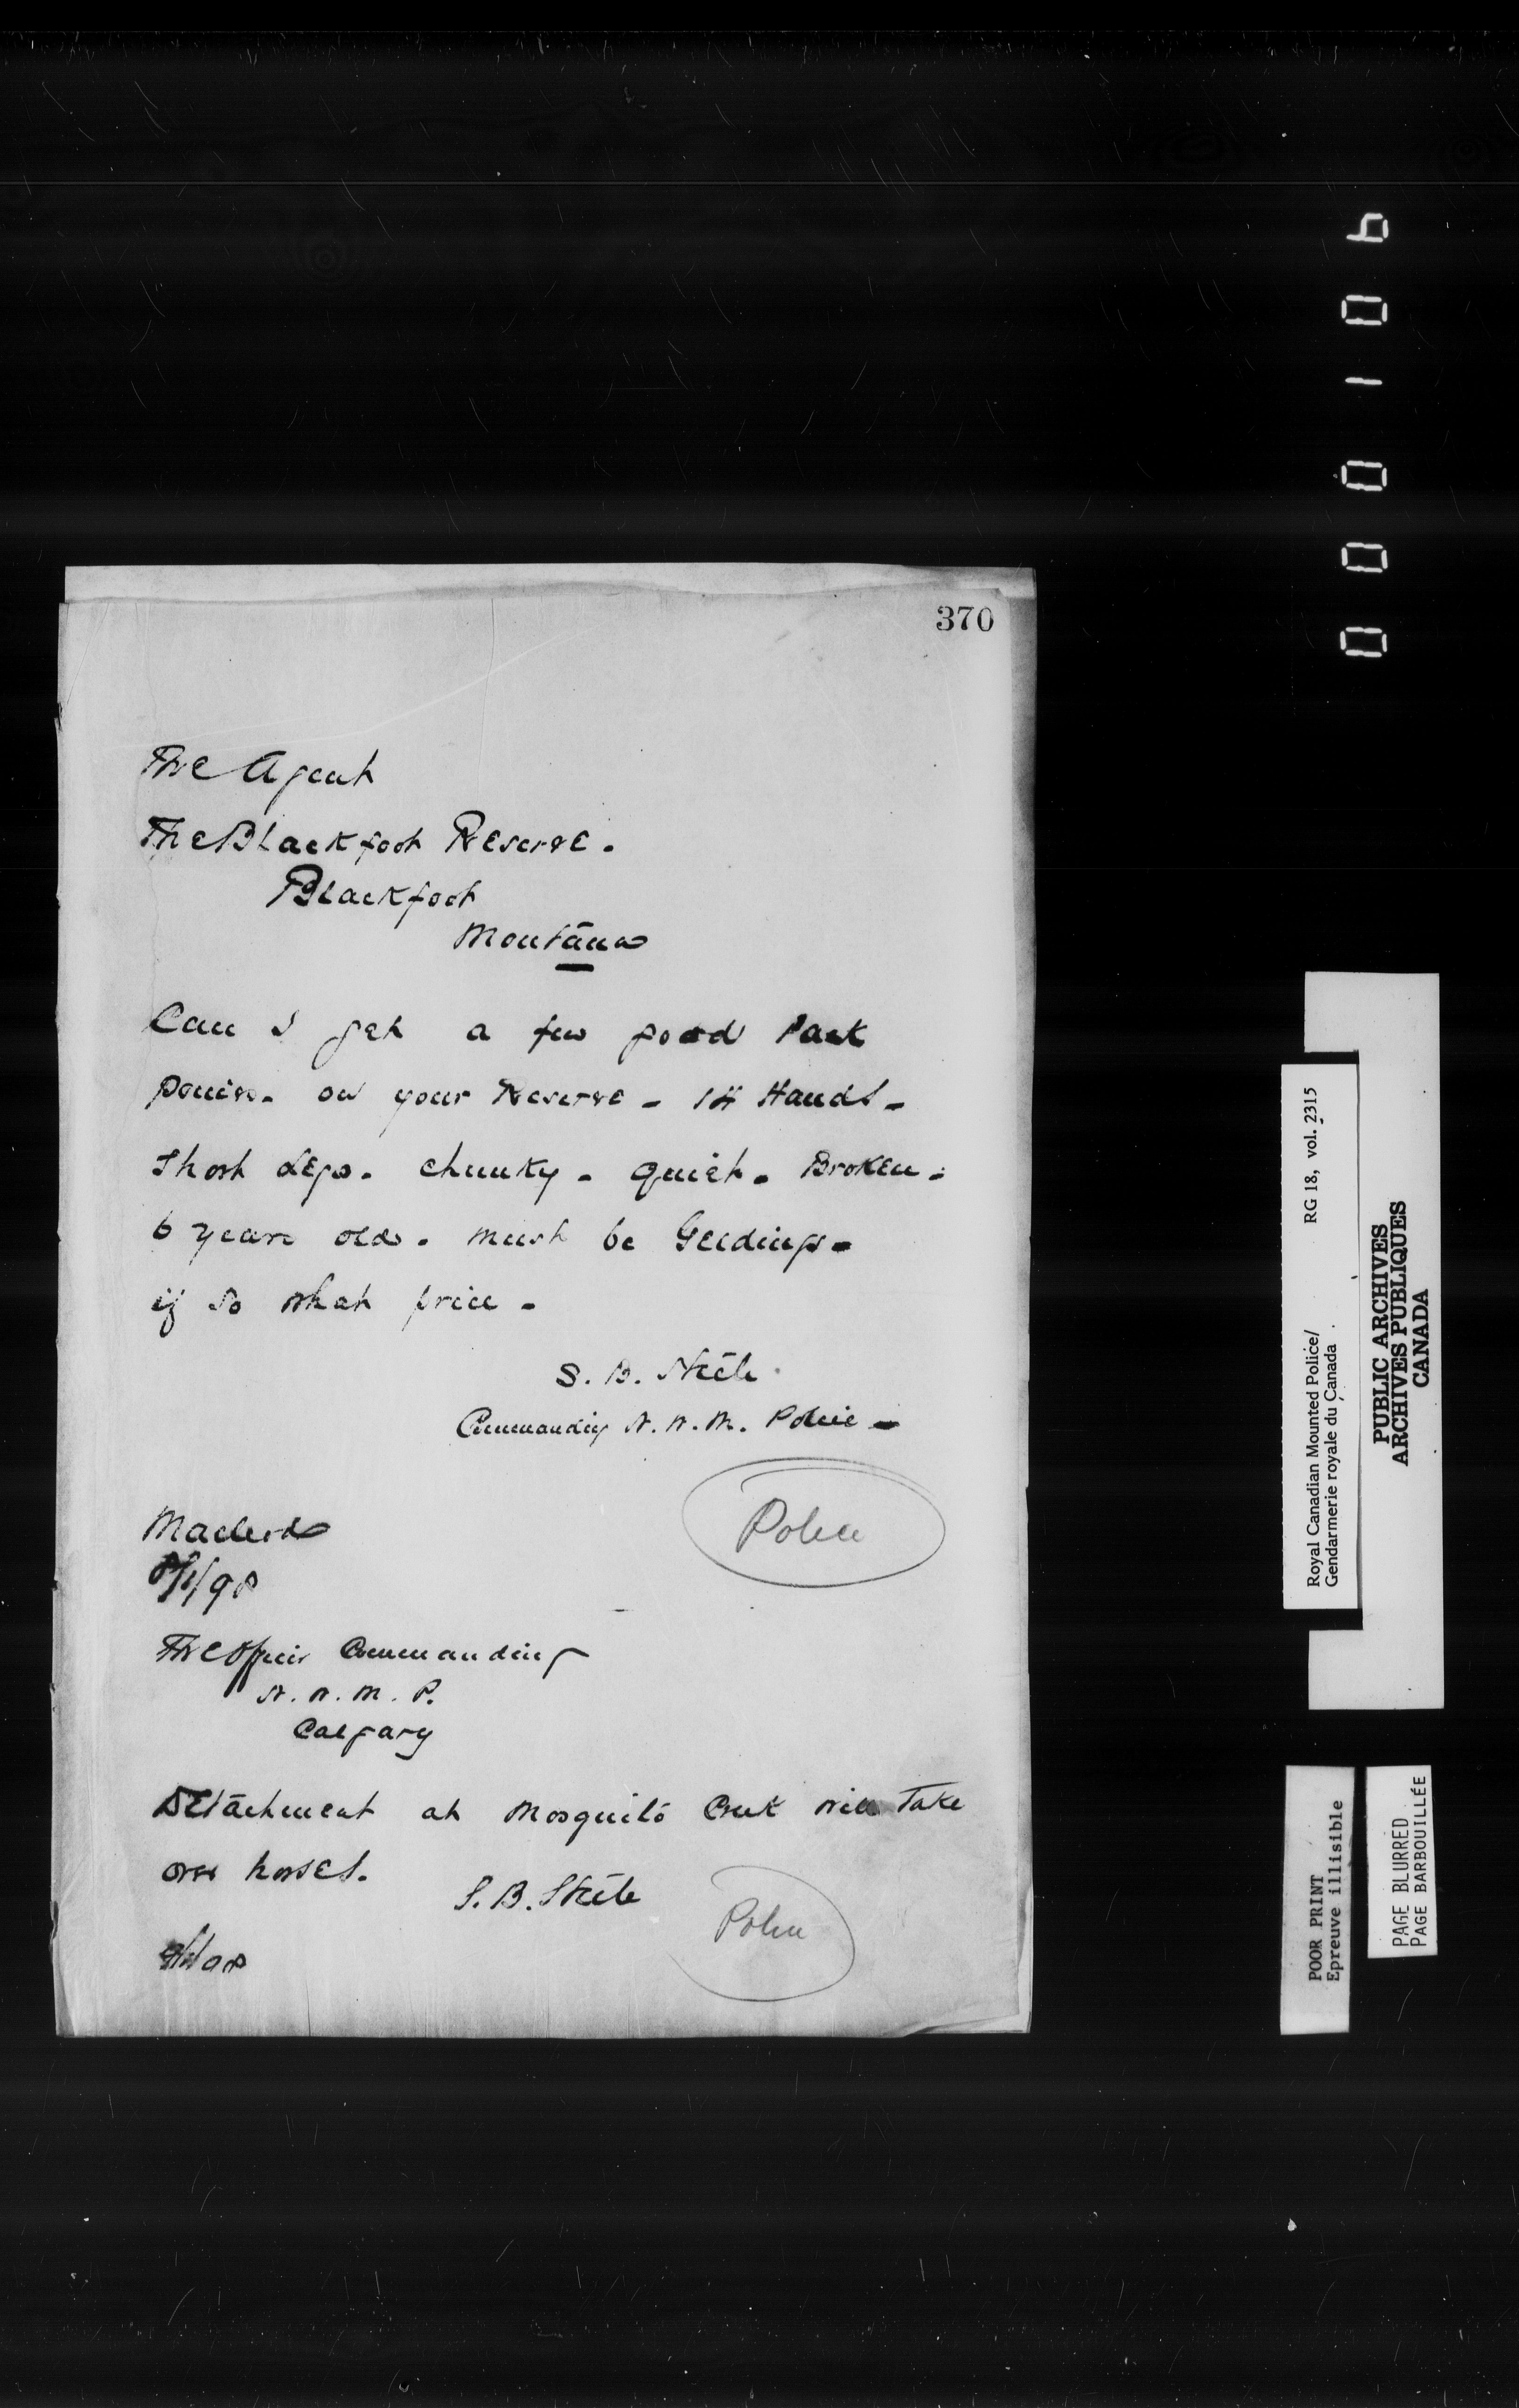 370
The Agent
The Blackfoot Reserve.
Blackfoot
Montana
Can I get a few good Pack
ponies. on your Reserve - 14 Hands -
Short Legs. chunky - quiet. Broken -
6 years old. must be Geldings -
if so what price -
S. B. Steele.
Commanding N. W. M. Police -
Police
Macleod
8/1/98
The Officer Commanding
N. W. M. P.
Calgary
Detachment at Mosquito Creek will Take
over horses.
S. B. Steele
Police
/98
000106
Royal Canadian Mounted Police/ RG 18, vol. 2315
Gendarmerie royale du Canada
PUBLIC ARCHIVES
ARCHIVES PUBLIQUES
CANADA
POOR PRINT
Epreuve illisible
PAGE BLURRED
PAGE BARBOUILLÉE